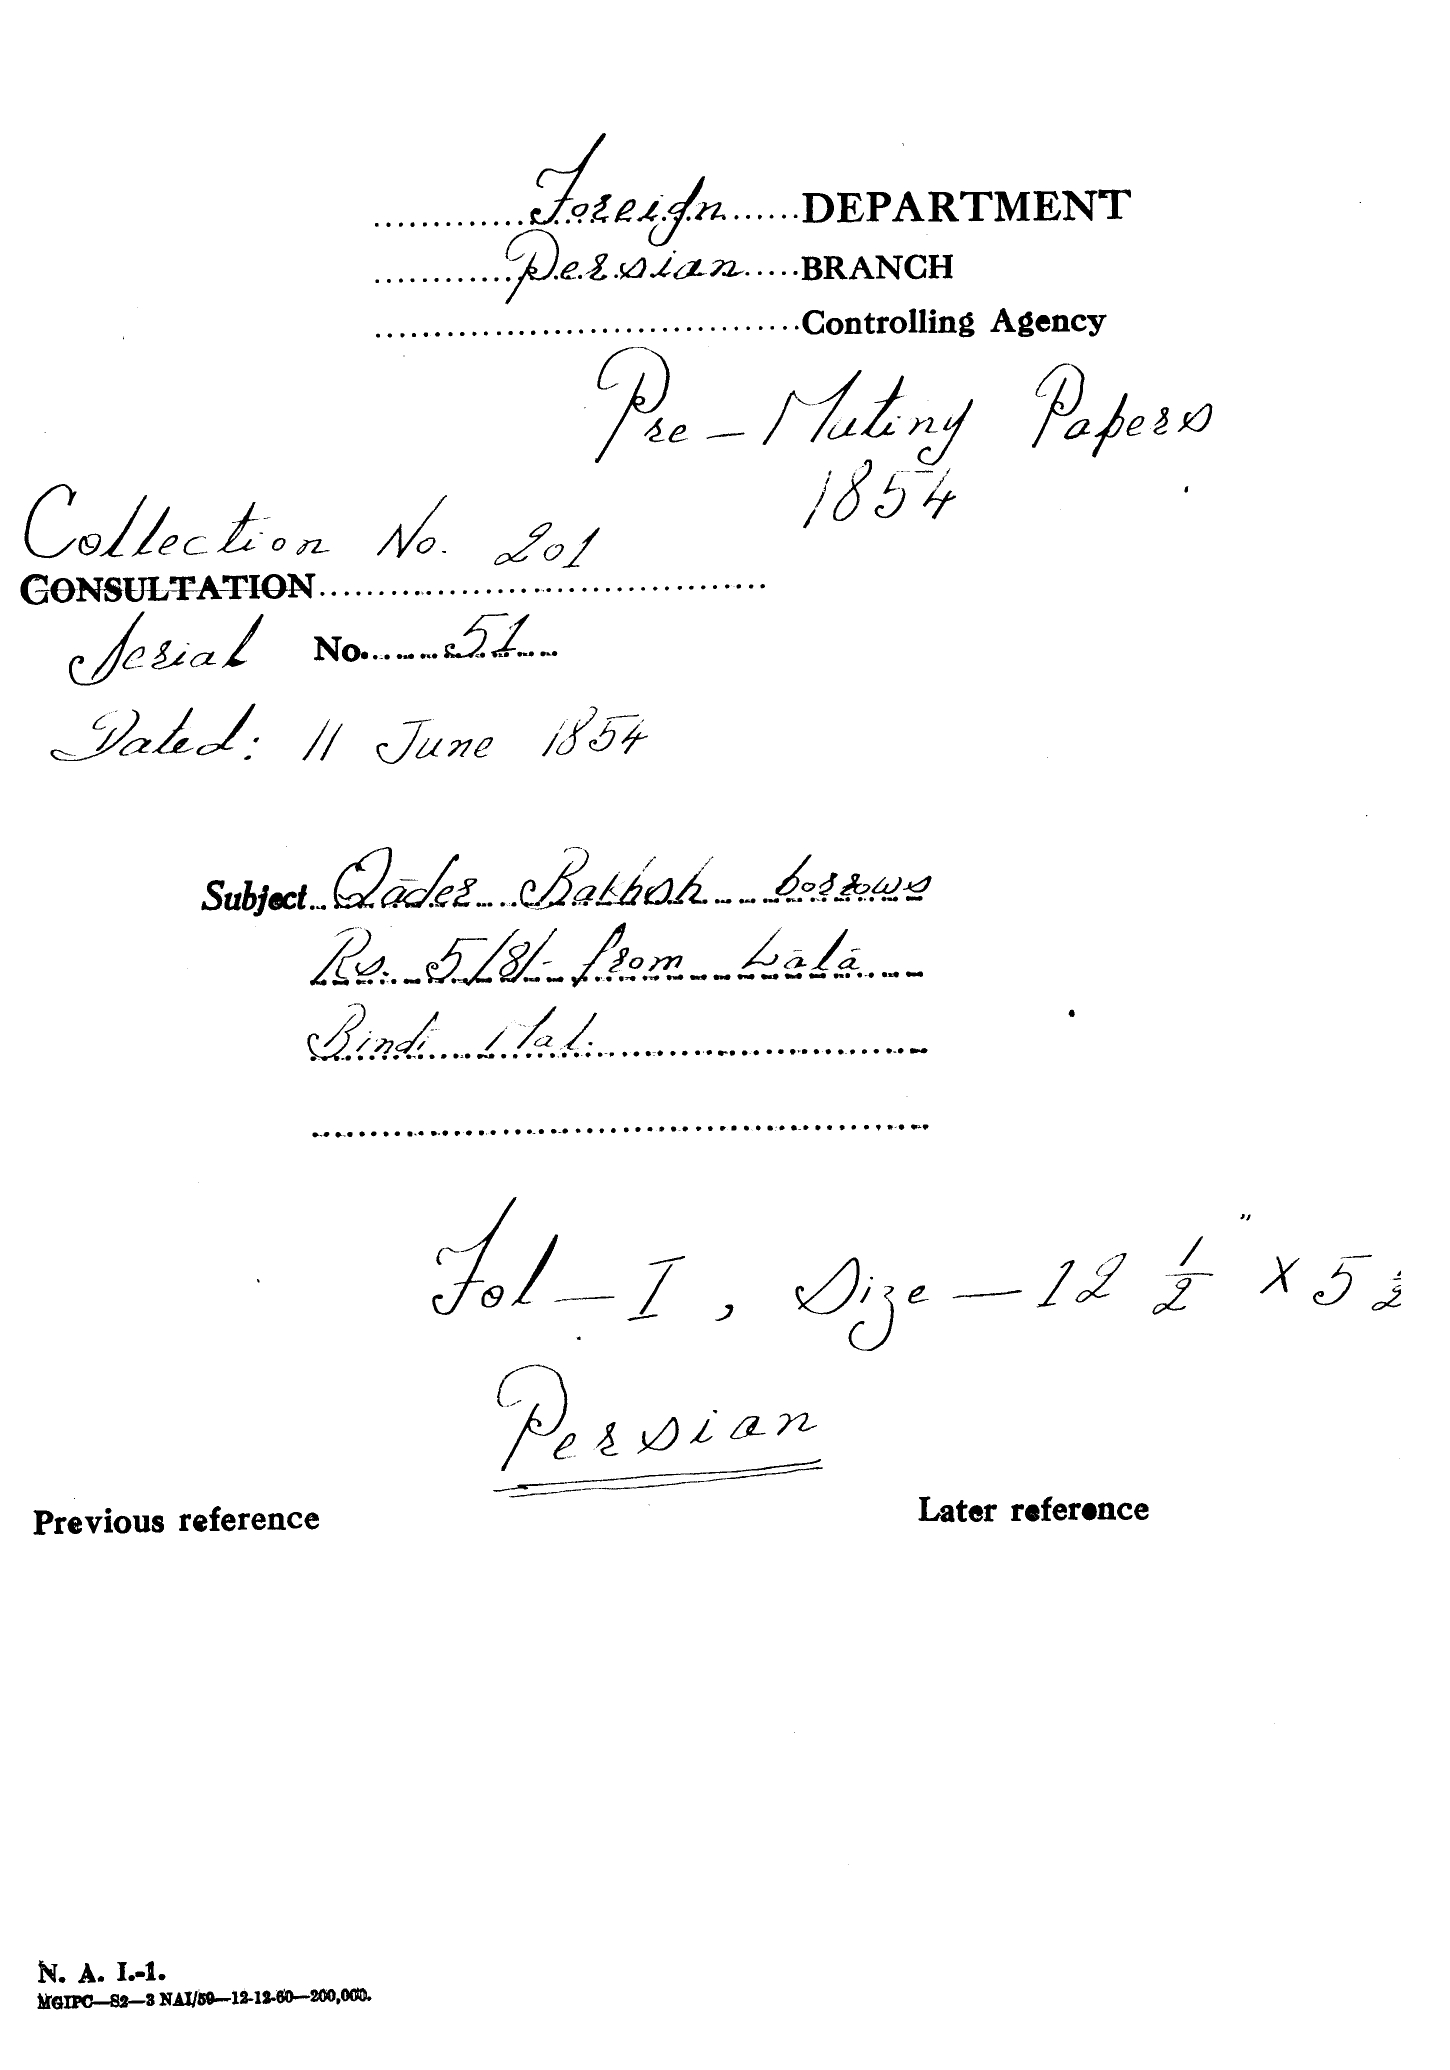 Foreign DEPARTMENT
Persian BRANCH
Controlling Agency
Pre-Mutiny Papers
1854
Collection No. 201
CONSULTATION
Serial No. 51
Dated: 11 June 1854
Subject Qāder Bakhsh borrows
Rs. 5/8/- from Lālā
Bindi Mal.
Fol-I, Size-12 1/2" X 5 1/2
Persian
Previous reference
Later reference
N. A. I.-1.
MGIPC—S2—3 NAI/59—12-12-60—200,000.